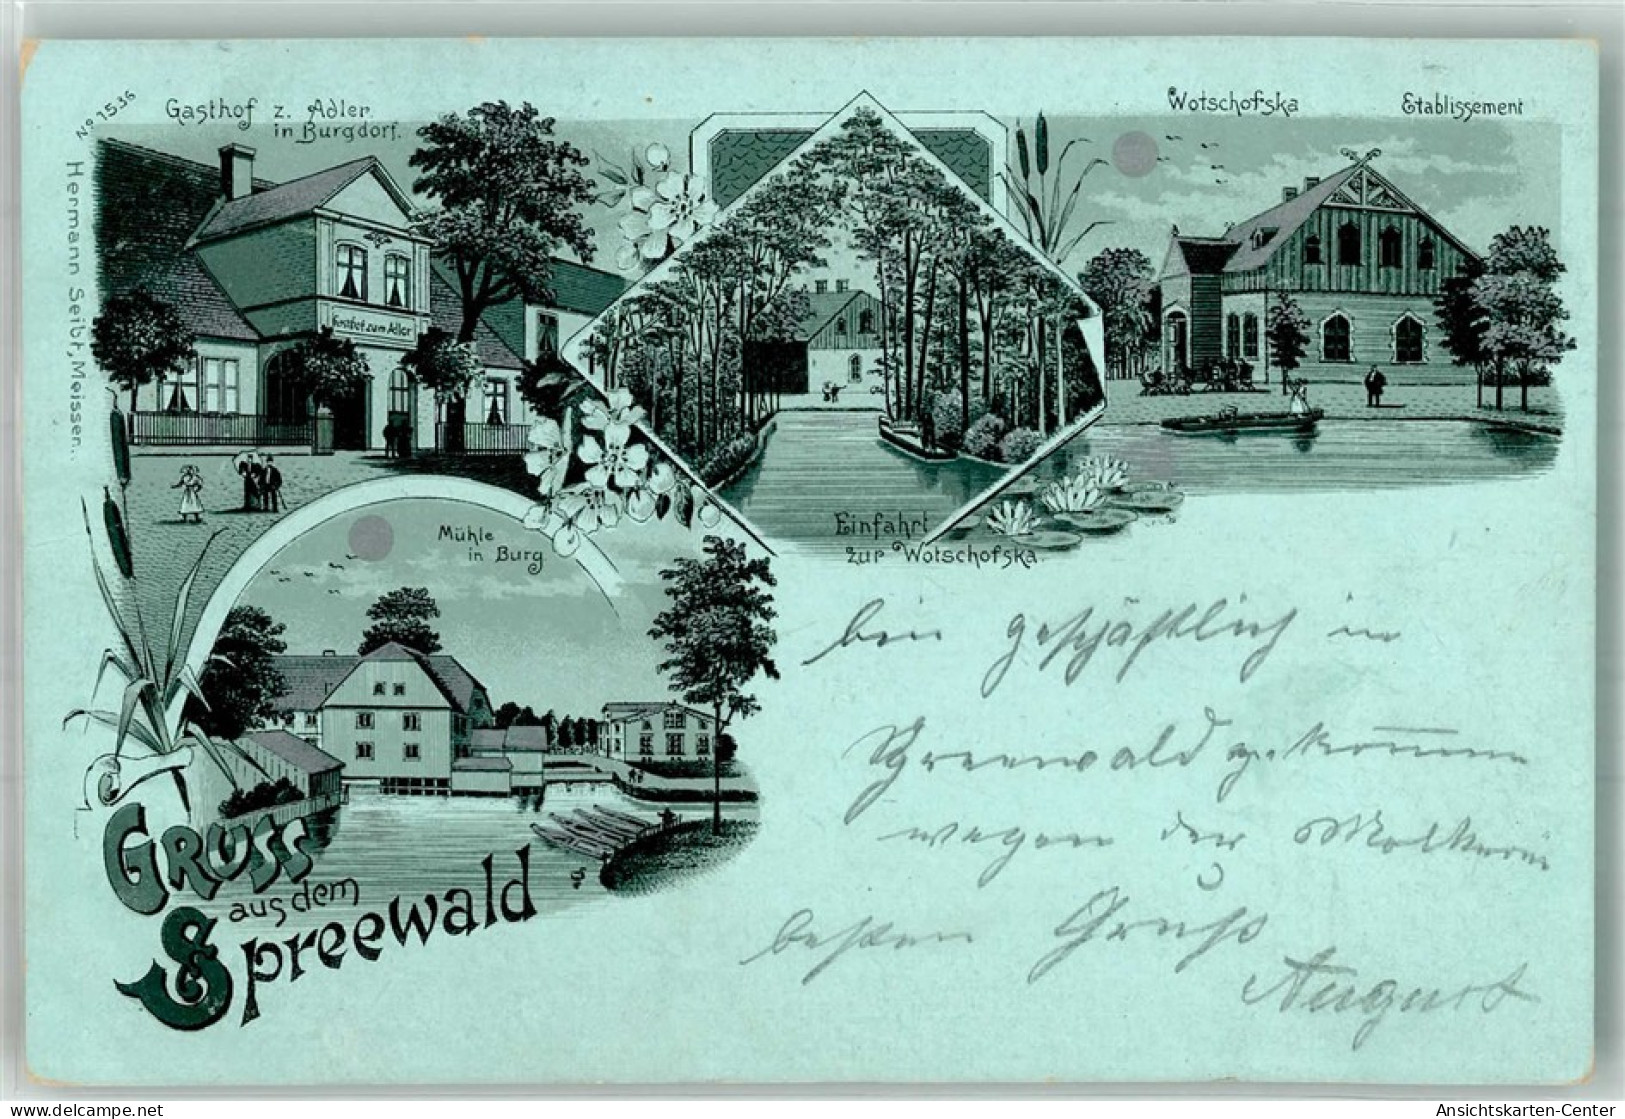 No 1536
Hermann Seibt, Meissen.
Gasthof z. Adler
in Burgdorf.
Gasthof zum Adler
Wotschofska Etablissement
Einfahrt
zur Wotschofska.
Mühle
in Burg
GRUSS
aus dem
Spreewald
bin geschäftlich in
Spreewald gekommen
wegen der Molkerei
besten Gruß
August
delcampe.net
Ansichtskarten-Center